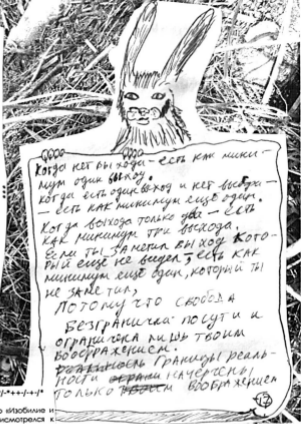 Когда нет выхода – есть как мини-
мум один выход.
Когда есть один выход и нет выбора –
– есть как минимум ещё один.
Когда выхода только два – есть
как минимум три выхода.
Если ты заметил выход кото-
рый ещё не видел, есть как
минимум ещё один, который ты
не заметил,
Потому что свобода
безгранична по сути и
ограничена лишь твоим
воображением.
Границы реаль-
ности начерчены
только воображением
и «Изобилие и
исмотрелся к